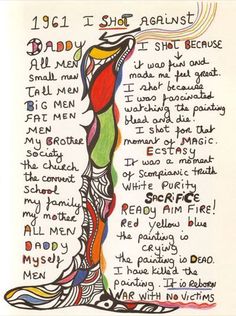 1961 I SHOT AGAINST
DADDY
All MEN
Small men
Tall MEN
BIG MEN
FAT MEN
MEN
My BROTHER
Society
the church
the convent
School
my family
my mother
All MEN
DADDY
Myself
MEN
I SHOT BECAUSE
it was fun and
made me feel great.
I shot because
I was fascinated
watching the painting
bleed and die!
I shot for that
moment of MAGIC.
ECSTASY
It was a moment
of Scorpionic truth
WHITE PURITY
SACRIFICE
READY AIM FIRE!
Red yellow blue
the painting is
CRYING
the painting is DEAD.
I have killed the
painting. It is REBORN
WAR WITH NO VICTIMS